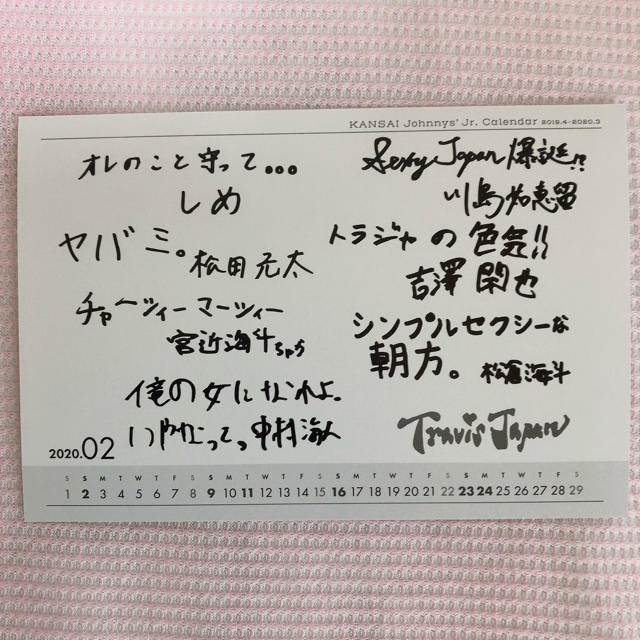 KANSAI Johnnys' Jr. Calendar 2019.4-2020.3
オレのこと守って...
しめ
ヤバミ。
松田元太
チャーツィーマーツィー
宮近海斗ちゃら
俺の女になれよ。
いやだってっ 中村海人
Sexy Japan 爆誕!?
川島如恵留
トラジャの色気!!
吉澤閑也
シンプルセクシーな
朝方。 松倉海斗
Travis Japan
2020.02
S S M T W T F S S M T W T F S S M T W T F S S M T W T F S
1 2 3 4 5 6 7 8 9 10 11 12 13 14 15 16 17 18 19 20 21 22 23 24 25 26 27 28 29